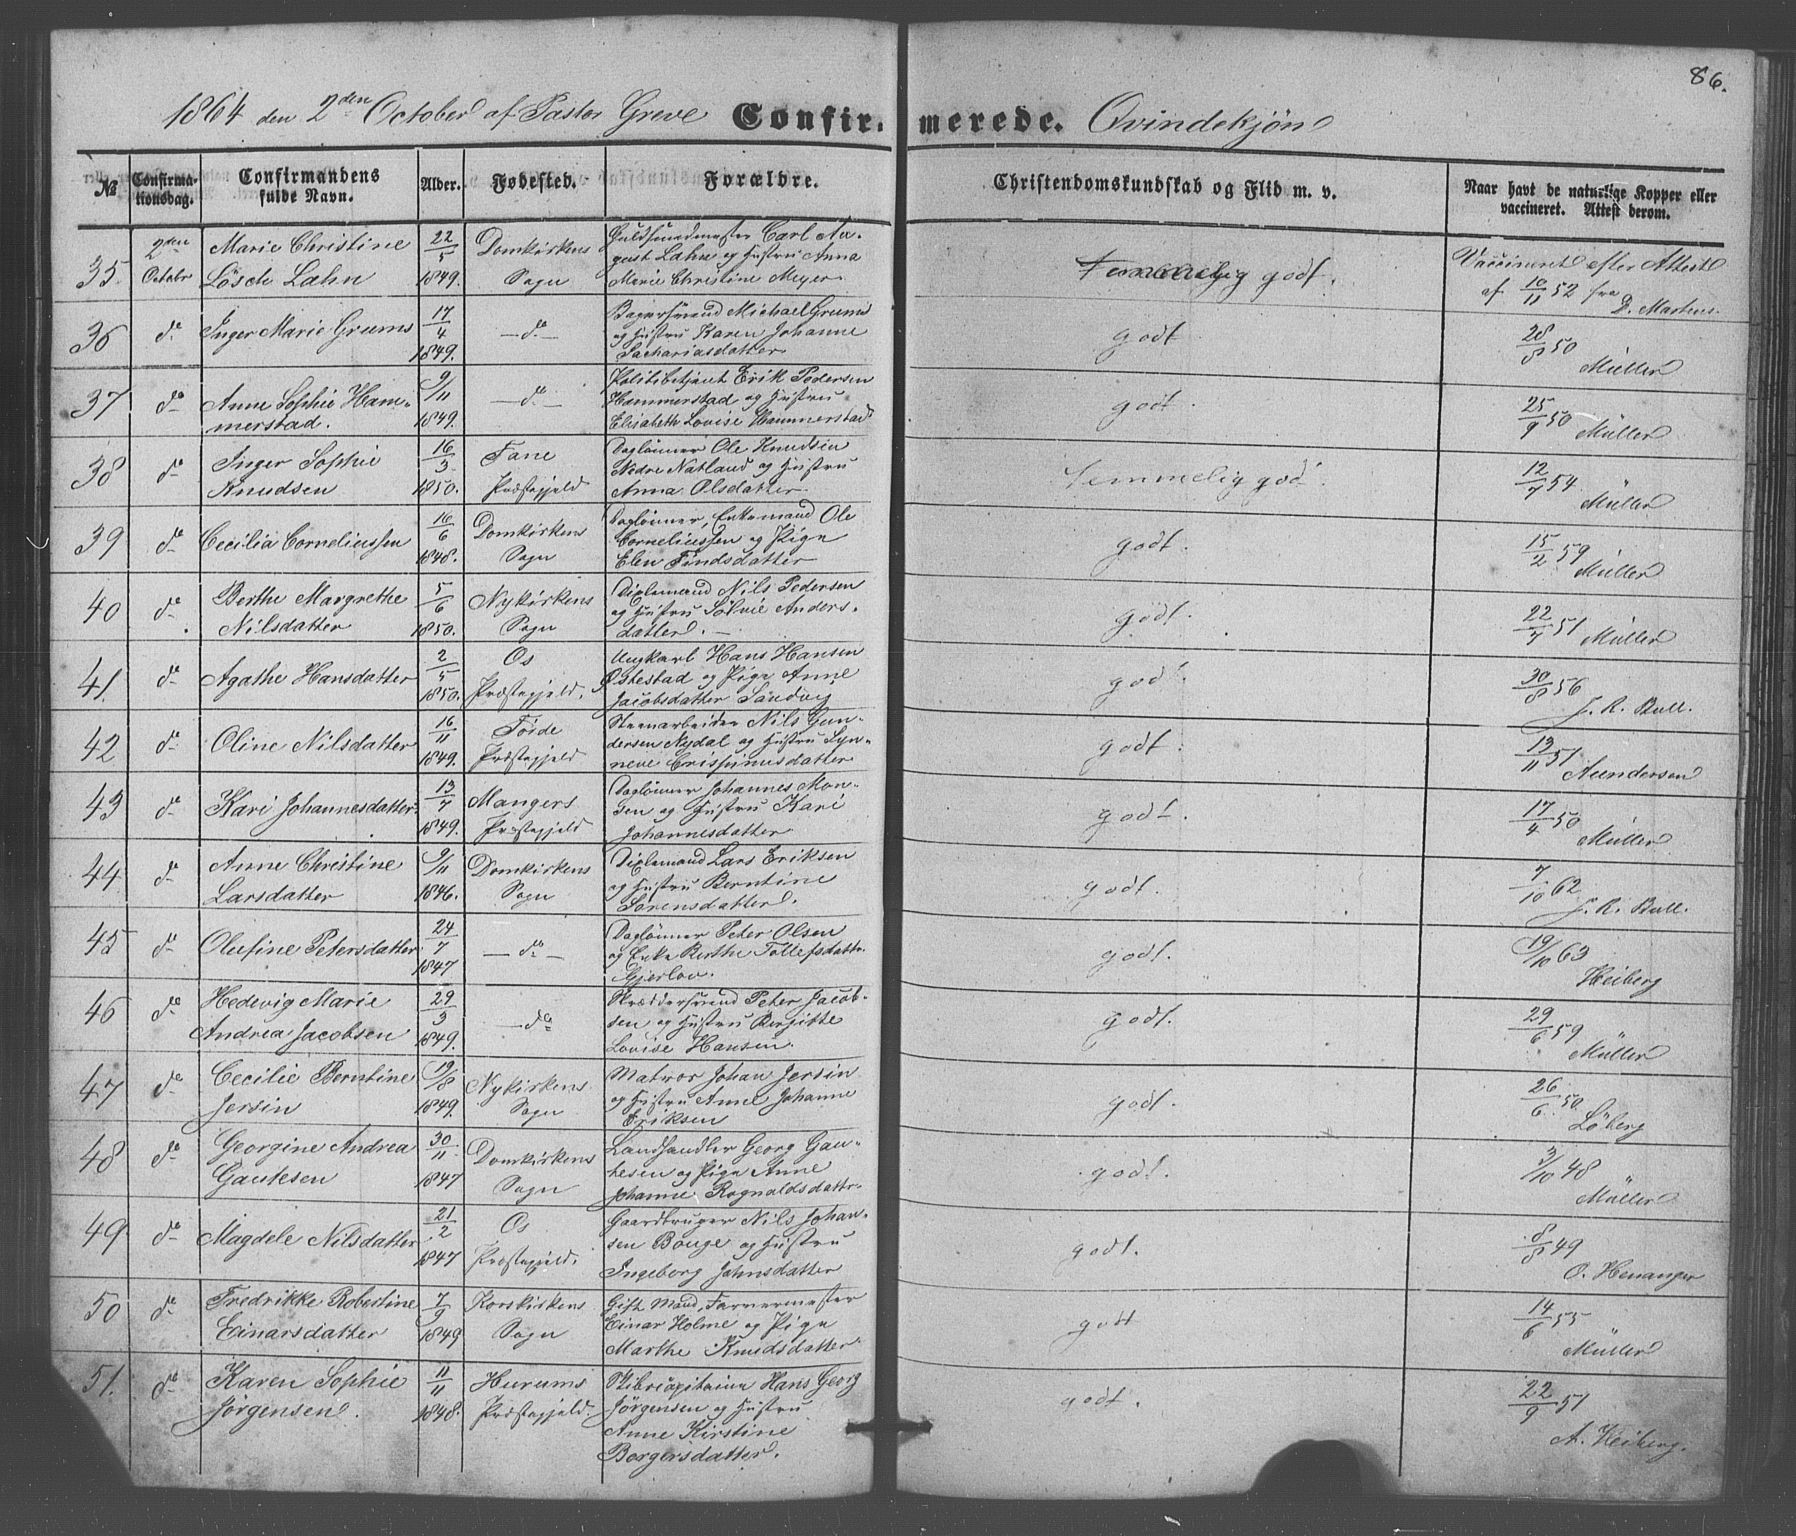 86.
1864 den 2den October af Pastor Greve Confirmerede. Qvindekjøn
№ Confirmationsdag. Confirmandens fulde Navn. Alder. Fødested. Forældre. Christendomskundskab og Flid m. v. Naar havt de naturlige Kopper eller vaccineret. Attest derom.
35 2den Octobr Marie Christine Lösch Lahn 22/5 1849. Domkirkens Sogn Guldsmedmester Carl August Lahn og Hustru Anna Marie Christine Meyer godt. Vaccineret efter Attest af 10/11 52 fra D. Martens.
36 do Inger Marie Grums 17/4 1849. do Bagersvend Michael Grums og Hustru Karen Johanne Sachariasdatter godt 28/8 50 Müller
37 do Anne Sophie Hammerstad. 9/11 1849. do Politibetjent Erik Pedersen Hammerstad og Hustru Elisabeth Lovise Hammerstad godt. 25/9 50 Müller
38 do Inger Sophie Knudsen 16/3 1850. Fane Præstegjeld Daglønner Ole Knudsen Nedre Natland og Hustru Anna Olsdatter Temmelig godt 12/7 54 Müller
39 do Cecilia Corneliussen 16/6 1848. Domkirkens Sogn Daglønner, Enkemand Ole Corneliussen og Pige Elen Findsdatter godt. 15/2 59 Müller
40 do Berthe Margrethe Nilsdatter 5/6 1850. Nykirkens Sogn Dixlemand Nils Pedersen og Hustru Sølvie Andersdatter. godt. 22/7 51 Müller
41. do Agathe Hansdatter 2/5 1850. Os Præstegjeld. Ungkarl Hans Hansen Østestad og Pige Anne Jacobsdatter Sandvig godt 30/8 56 J. R. Bull.
42 do Oline Nilsdatter 16/11 1849. Førde Præstegjeld Steenarbeider Nils Gundersen Nydal og Hustru Synneve Crispinusdatter godt. 13/11 51 Aundersen
43 do Kari Johannesdatter. 13/7 1849. Mangers Præstegjeld Daglønner Johannes Monsen og Hustru Kari Johannesdatter godt. 17/4 50 Müller
44 do Anne Christine Larsdatter 9/11 1846. Domkirkens Sogn Dixlemand Lars Eriksen og Hustru Berntine Sørensdatter. godt. 7/10 62 J. R. Bull.
45 do Olufine Petersdatter 24/7 1847 do Daglønner Peter Olsen og Enke Berthe Tollefsdattr Gjerlov. godt. 19/10 63 Heiberg
46 do Hedevig Marie Andrea Jacobsen 29/3 1849. do Skræddersvend Peter Jacobsen og Hustru Birgitte Lovise Hansen. godt. 29/6 59 Müller
47 do Cecilie Berntine Jersin 19/8 1849. Nykirkens Sogn Matros Johan Jersin og Hustru Anne Johanne Eriksen godt. 26/6 50 Löberg
48 do Georgine Andrea Gautesen 30/11 1847 Domkirkens Sogn Landhandler Georg Gautesen og Pige Anne Johanne Rognaldsdattr godt. 3/10 48 Müller
49 do Magdele Nilsdatter 21/2 1847 Os Præstegjeld. Gaardbruger Nils Johansen Bouge og Hustru Ingeborg Johnsdatter godt. 8/8 49 O. Henanger
50 do Fredrikke Robertine Einarsdatter 7/9 1849 Korskirkens Sogn Gift Mand, Farvermester Einar Holme og Pige Marthe Knudsdatter godt 14/6 55 Müller
51. do Karen Sophie Jørgensen. 11/11 1848. Hurums Præstegjeld. Skibscapitaine Hans Georg Jørgensen og Hustru Anne Kirstine Borgersdatter. godt. 22/9 51 A. Heiberg.